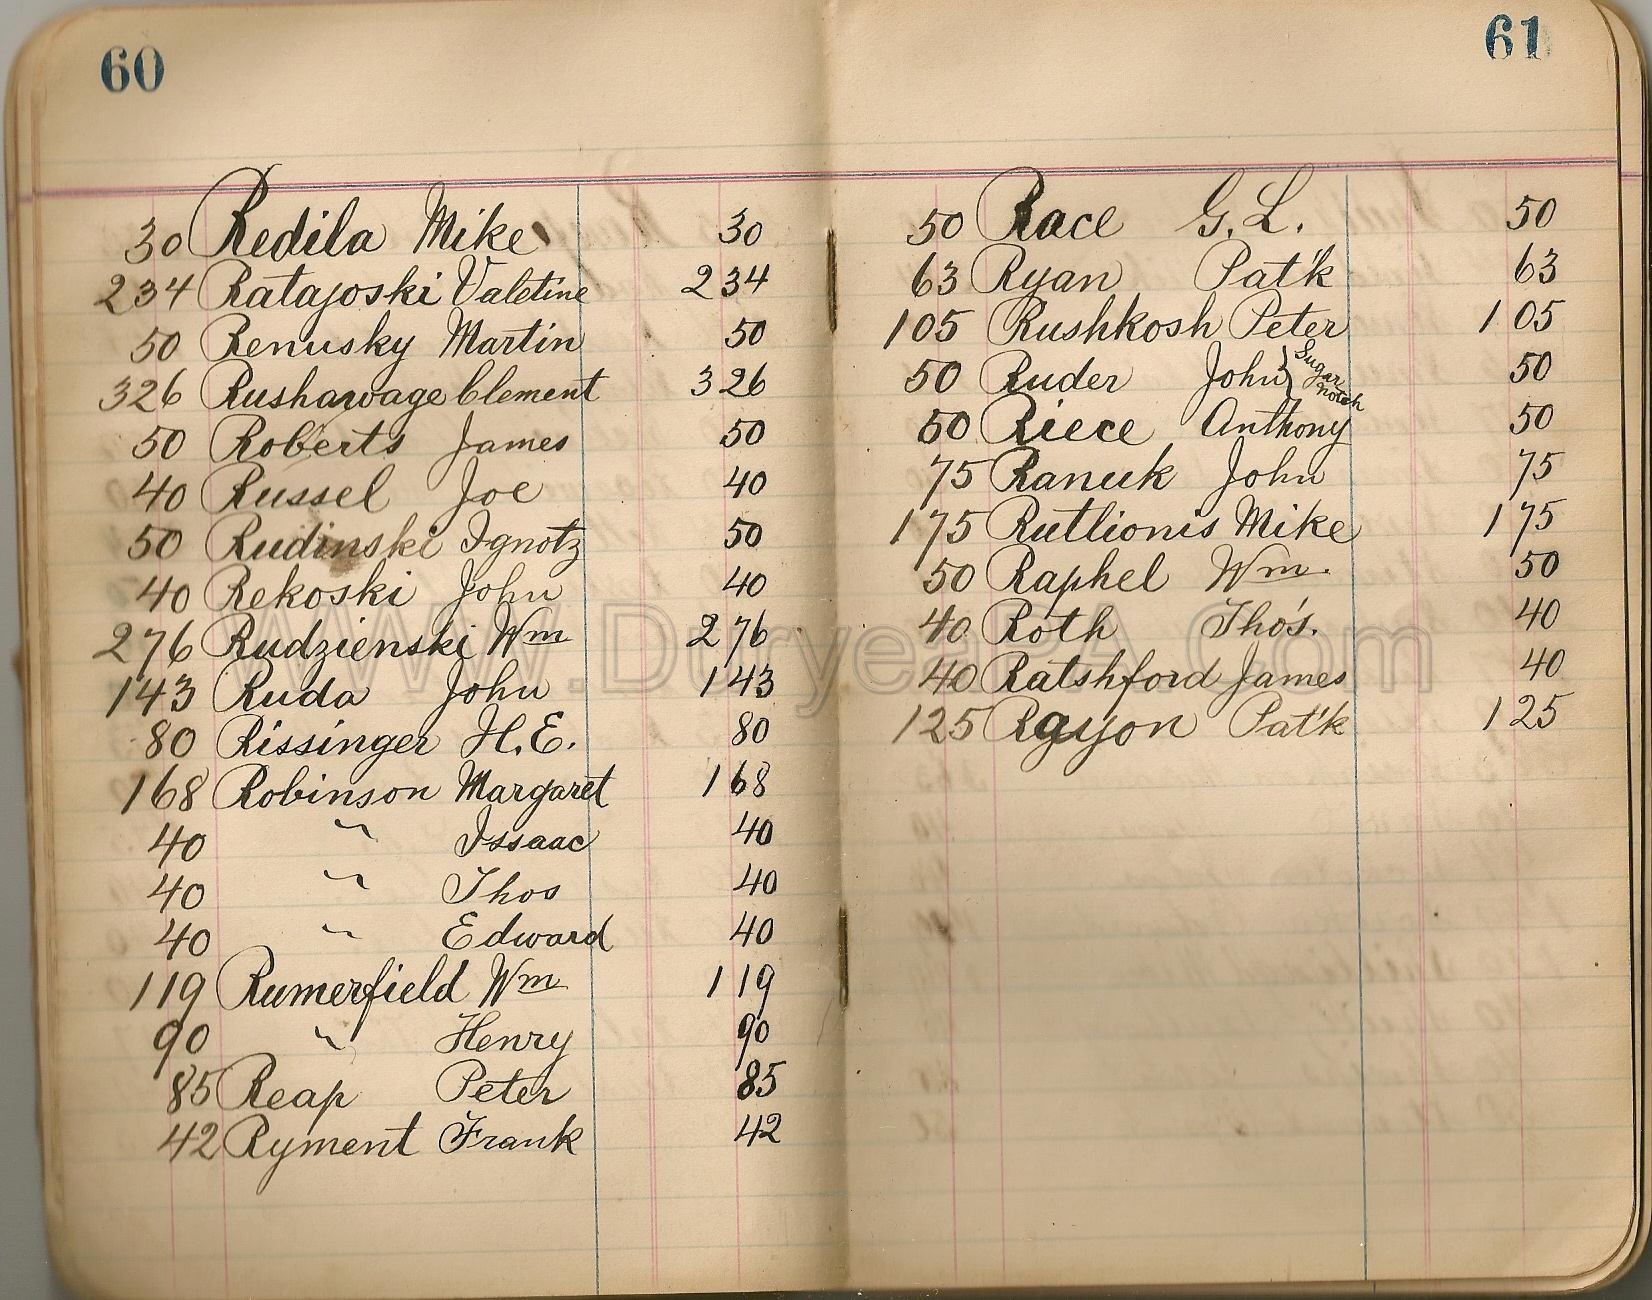 60
30 Redila Mike 30
234 Ratajoski Valetine 234
50 Renusky Martin 50
326 Rushawage Clement 326
50 Roberts James 50
40 Russel Joe 40
50 Rudinski Ignotz 50
40 Rekoski John 40
276 Rudzienski Wm 276
143 Ruda John 143
80 Rissinger H.E. 80
168 Robinson Margaret 168
40 " Issaac 40
40 " Thos 40
40 " Edward 40
119 Rumerfield Wm 119
90 " Henry 90
85 Reap Peter 85
42 Ryment Frank 42
61
50 Race G.L. 50
63 Ryan Pat'k 63
105 Rushkosh Peter 105
50 Ruder John } Sugar notch 50
50 Riece Anthony 50
75 Ranuk John 75
175 Rutlionis Mike 175
50 Raphel Wm. 50
40 Roth Tho's. 40
40 Ratshford James 40
125 Pat'k 125
WWW.DuryeaPA.Com